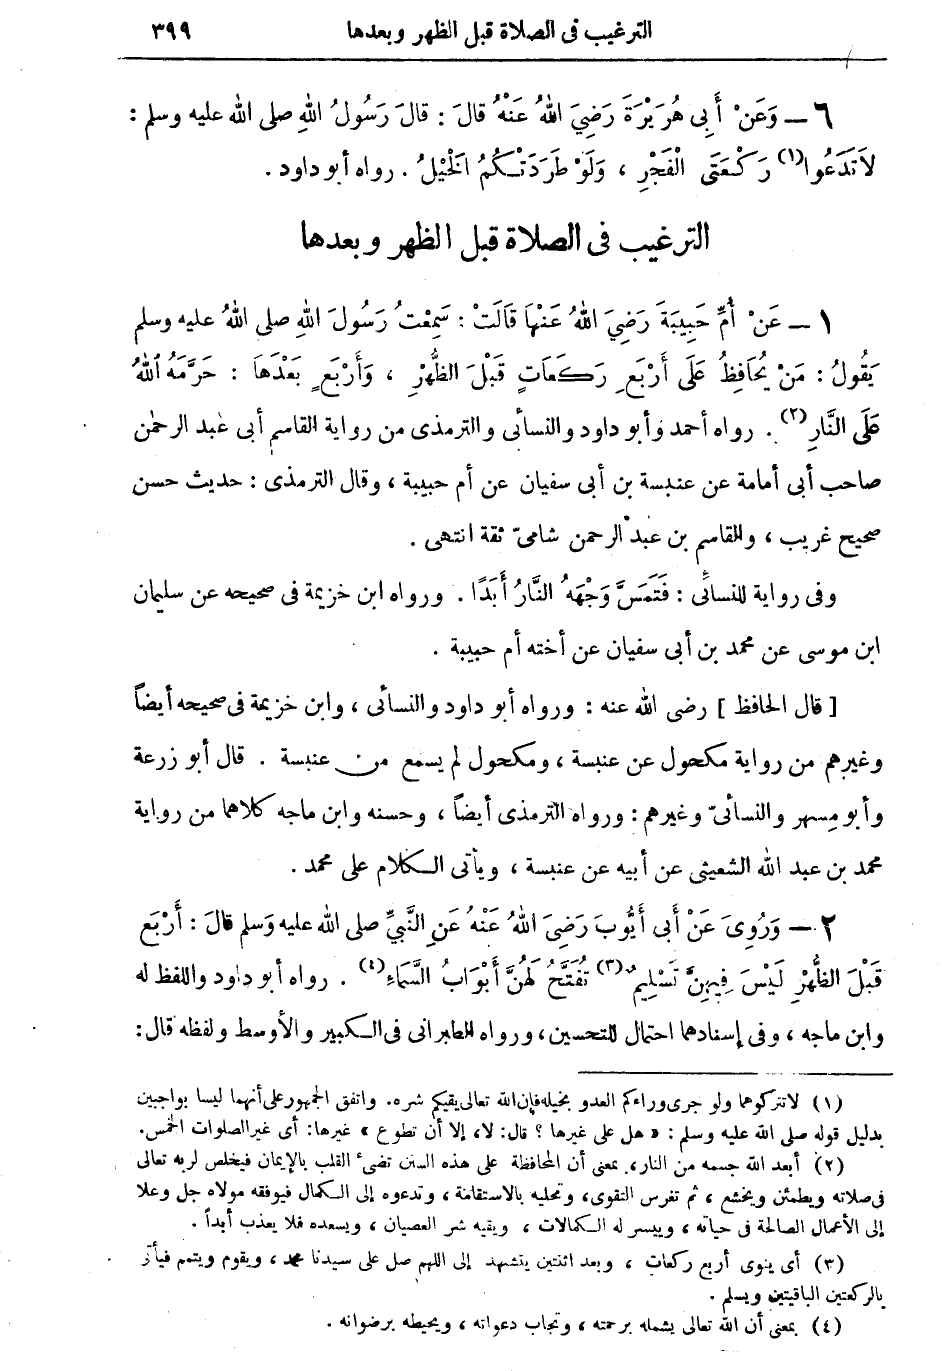 الترغيب فى الصلاة قبل الظهر وبعدها ٣٩٩
٦ — وَعَنْ أَبِى هُرَيْرَةَ رَضِيَ اللهُ عَنْهُ قالَ : قالَ رَسُولُ اللهِ صلى الله عليه وسلم :
لاَتَدَعُوا(١) رَكْعَتَىِ الْفَجْرِ ، وَلَوْ طَرَدَتْكُمُ الْخَيْلُ . رواه أبو داود .
الترغيب فى الصلاة قبل الظهر وبعدها
١ — عَنْ أُمِّ حَبِيبَةَ رَضِيَ اللهُ عَنْهَا قَالَتْ : سَمِعْتُ رَسُولَ اللهِ صلى اللهُ عليه وسلم
يَقُولُ : مَنْ يُحَافِظُ عَلَى أَرْبَعِ رَكَعَاتٍ قَبْلَ الظُّهْرِ ، وَأَرْبَعٍ بَعْدَهَا : حَرَّمَهُ اللهُ
عَلَى النَّارِ(٢) . رواه أحمد وأبو داود والنسائى والترمذى من رواية القاسم أبى عبد الرحمن
صاحب أبى أمامة عن عنبسة بن أبى سفيان عن أم حبيبة ، وقال الترمذى : حديث حسن
صحيح غريب ، والقاسم بن عبد الرحمن شامىّ ثقة انتهى .
وفى رواية للنسائى : فَتَمَسَّ وَجْهَهُ النَّارُ أَبَدًا . ورواه ابن خزيمة فى صحيحه عن سليمان
ابن موسى عن محمد بن أبى سفيان عن أخته أم حبيبة .
[ قال الحافظ ] رضى الله عنه : ورواه أبو داود والنسائى ، وابن خزيمة فى صحيحه أيضاً
وغيرهم من رواية مكحول عن عنبسة ، ومكحول لم يسمع من عنبسة . قال أبو زرعة
وأبو مسهر والنسائىّ وغيرهم : ورواه الترمذى أيضاً ، وحسنه وابن ماجه كلاهما من رواية
محمد بن عبد الله الشعيثى عن أبيه عن عنبسة ، ويأتى الكلام على محمد .
٢ — وَرُوِىَ عَنْ أَبى أَيُّوبَ رَضِىَ اللهُ عَنْهُ عَنِ النَّبِيِّ صلى الله عليه وَسلم قالَ : أَرْبَع
قَبْلَ الظُّهْرِ لَيْسَ فِيهِنَّ تَسْلِيمٌ(٣) تُفْتَحُ لَهُنَّ أَبْوَابُ السَّمَاءِ(٤) . رواه أبو داود واللفظ له
وابن ماجه ، وفى إسنادهما احتمال للتحسين ، ورواه الطبرانى فى الكبير والأوسط ولفظه قال :
(١) لاتتركوها ولو جرى وراءكم العدو بخيله فإن الله تعالى يقيكم شره. واتفق الجمهور على أنهما ليسا بواجبين
بدليل قوله صلى الله عليه وسلم : « هل على غيرها ؟ قال: لا، إلا أن تطوع » غيرها: أى غير الصلوات الخمس.
(٢) أبعد الله جسمه من النار، بمعنى أن المحافظة على هذه السنن تضىء القلب بالإيمان فيخلص لربه تعالى
فى صلاته ويطمئن ويخشع ، ثم تغرس التقوى، وتحليه بالاستقامة ، وتدعوه إلى الكمال فيوفقه مولاه جل وعلا
إلى الأعمال الصالحة فى حياته ، وييسر له الكمالات ، ويقيه شر العصيان ، ويسعده فلا يعذب أبداً .
(٣) أى ينوى أربع ركعات ، وبعد اثنتين يتشهد إلى اللهم صل على سيدنا محمد ، ويقوم ويتمم فيأتى
بالركعتين الباقيتين ويسلم .
(٤) بمعنى أن الله تعالى يشمله برحمته ، وتجاب دعواته ، ويحيطه برضوانه .